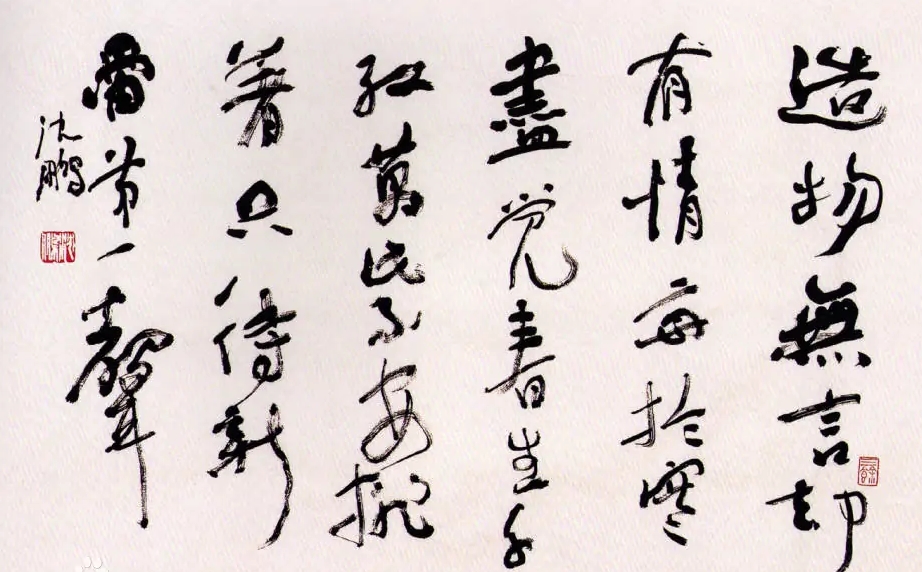 造物無言却
有情每於寒
盡觉春生千
紅萬紫安排
著只待新
雷第一聲
沈鵬